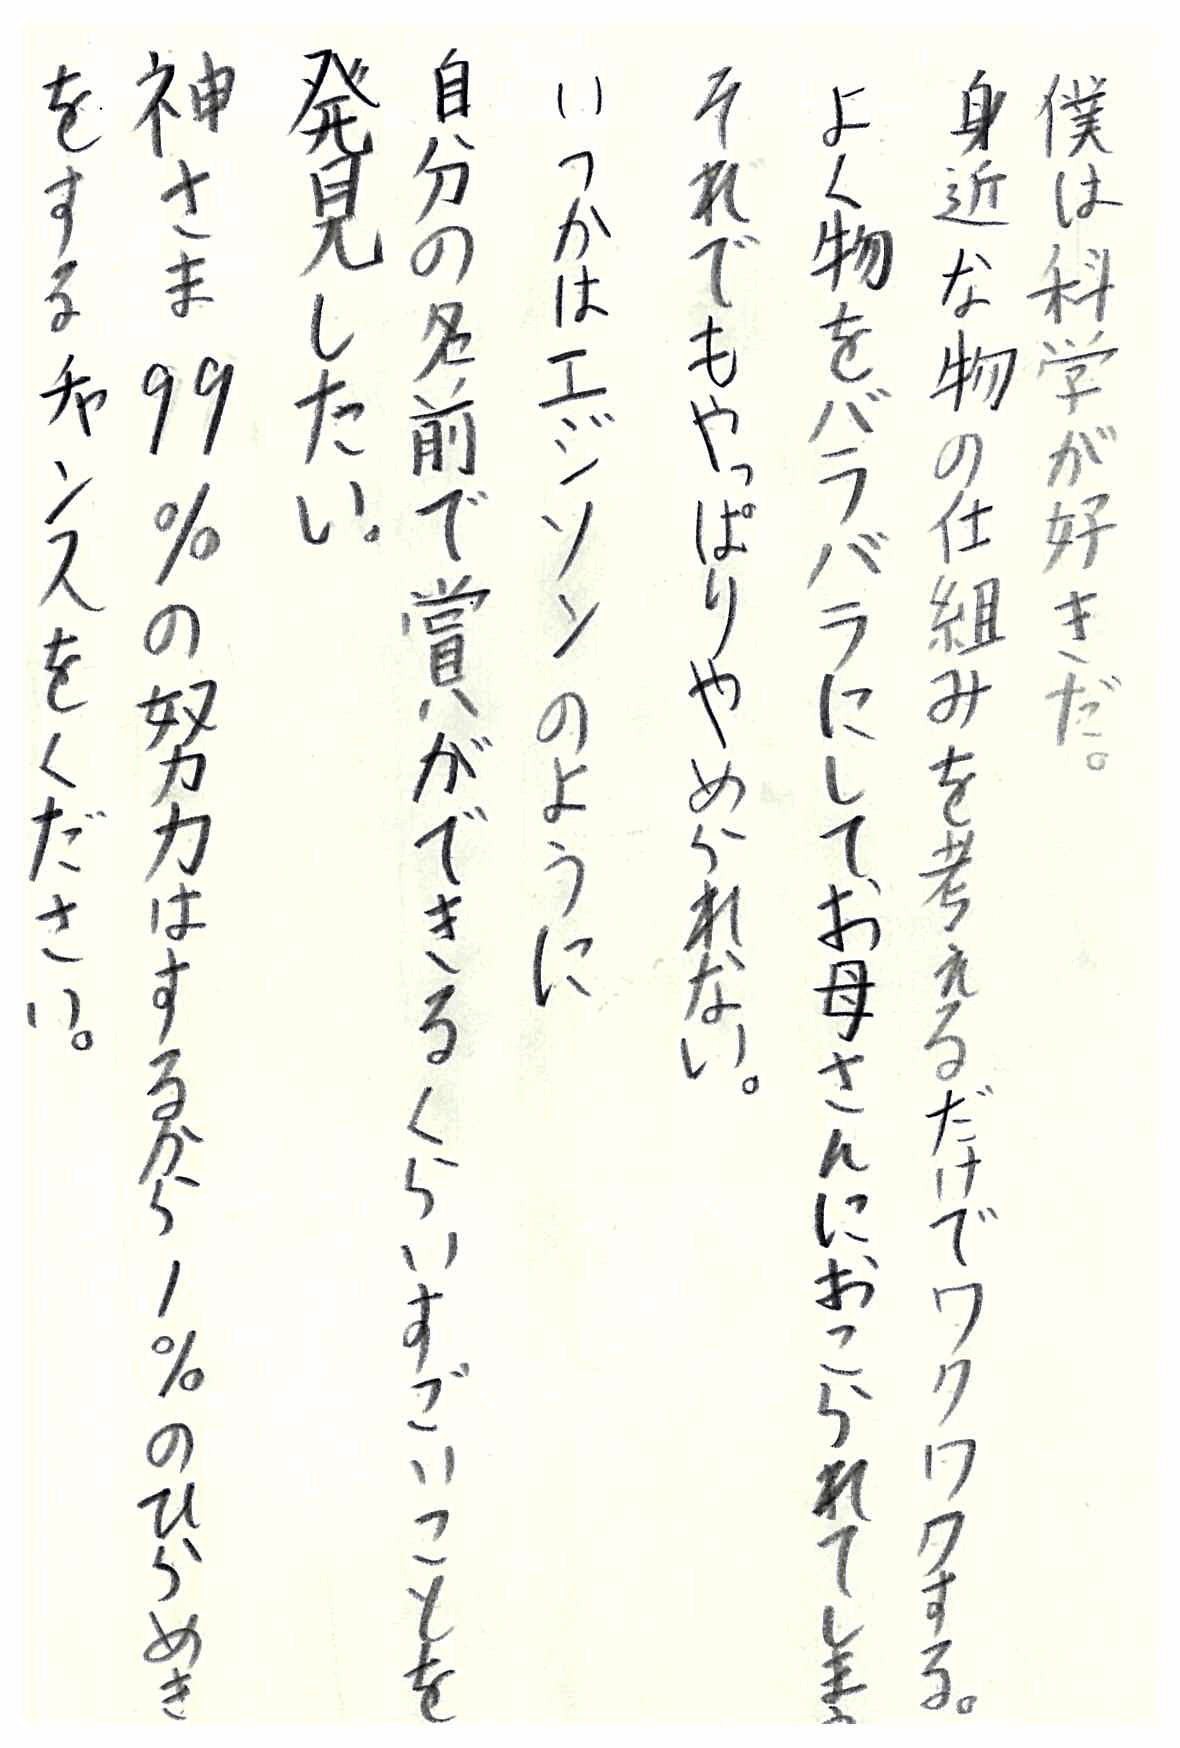 僕は科学が好きだ。
身近な物の仕組みを考えるだけでワクワクする。
よく物をバラバラにして、お母さんにおこられてしまう
それでもやっぱりやめられない。
いつかはエジソンのように
自分の名前で賞ができるくらいすごいことを
発見したい。
神さま99%の努力はするから1%のひらめき
をするチャンスをください。